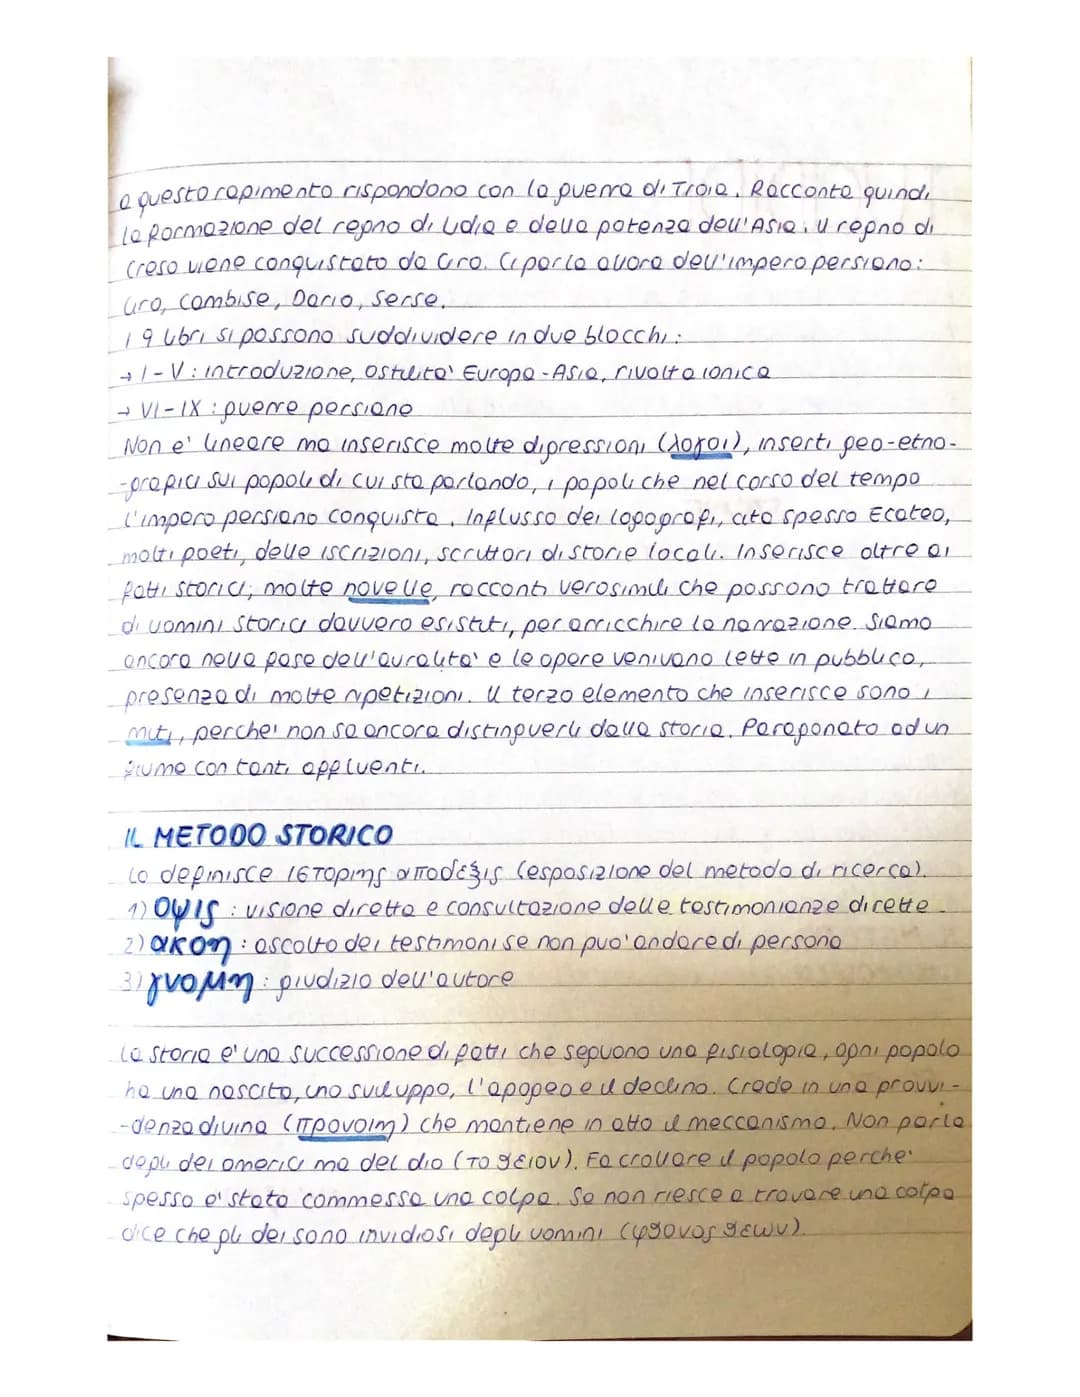 a questo rapimento rispondono con la guerra di Troia. Racconta quindi
la formazione del regno di Lidia e della potenza dell'Asia. Il regno di
Creso viene conquistato da Ciro. Ci parla allora dell'impero persiano:
Ciro, Cambise, Dario, Serse.
I 9 libri si possono suddividere in due blocchi:
→ I-V: introduzione, ostilita' Europa-Asia, rivolta ionica
→ VI-IX: guerre persiane
Non e' lineare ma inserisce molte digressioni (λογοι), inserti geo-etno-
-grafici sui popoli di cui sta parlando, i popoli che nel corso del tempo
l'impero persiano conquista. Influsso dei logografi, cita spesso Ecateo,
molti poeti, delle iscrizioni, scrittori di storie locali. Inserisce oltre ai
fatti storici, molte novelle, racconti verosimili che possono trattare
di uomini storici davvero esistiti, per arricchire la narrazione. Siamo
ancora nella fase dell'auralita' e le opere venivano lette in pubblico,
presenza di molte ripetizioni. Il terzo elemento che inserisce sono i
miti, perche' non sa ancora distinguerli dalla storia. Paragonato ad un
fiume con tanti affluenti.
IL METODO STORICO
Lo definisce ιστοριης αποδεξις (esposizione del metodo di ricerca).
1) οψις: visione diretta e consultazione delle testimonianze dirette
2) ακοη: ascolto dei testimoni se non puo' andare di persona
3) γνομη: giudizio dell'autore
La storia e' una successione di fatti che seguono una fisiologia, ogni popolo
ha una nascita, uno sviluppo, l'apogeo e il declino. Crede in una provvi-
-denza divina (προνοιη) che mantiene in atto il meccanismo. Non parla
degli dei omerici ma del dio (το θειον). Fa crollare il popolo perche'
spesso e' stata commessa una colpa. Se non riesce a trovare una colpa
dice che gli dei sono invidiosi degli uomini (φθονος θεων).